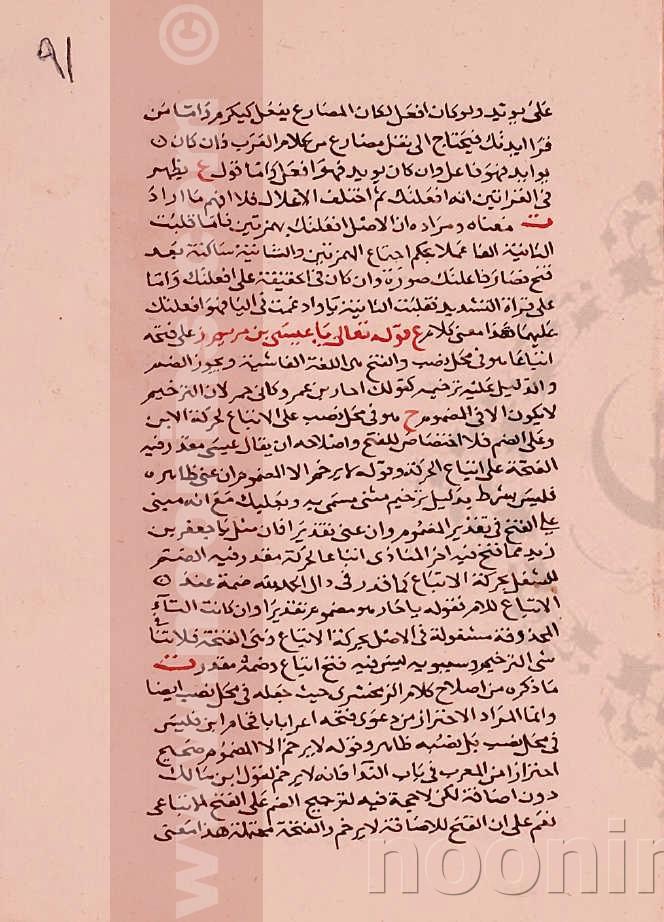 ٩١
على يويد ولو كان افعل لكان المضارع يفعل كيكرم واما من
قرا ايدتك فيحتاج الى نقل مضارع من كلام العرب فان كان
يوايد فهو فاعل وان كان يويد فهو افعل واما قول ع يظهر
في القراتين انه افعلتك ثم اختلف الاعلال فلا افهم ما اراد
ت معناه ومراده ان الاصل افعلتك بهمزتين فاما قلبت
الثانية الفا عملا بحكم اجتماع الهمزتين والثانية ساكنة بعد
فتح فصار فاعلتك صورة وان كان في الحقيقة على افعلتك واما
على قراة التشديد فقلبت الثانية يا وادغمت في اليا فهو افعلتك
عليهما هذا معنى كلام ع قوله تعالى يا عيسى بن مريم ز على فتحه
اتباعا هو في محل نصب والفتح هي اللغة الفاشية ويجوز الضم
والدليل عليه ترخيمه كقولك احار بن عمرو كاني خمر لان الترخيم
لا يكون الا في المضموم ح هو في محل نصب على الاتباع لحركة الابن
وعلى الضم فلا اختصاص للفتح واصلاحه ان يقال عيسى مقدر فيه
الفتحة على اتباع الحركة وقوله لا يرخم الا المضموم ان عنى ظاهره
فليس بشرط بدليل ترخيم مثنى مسمى به وبعلبك مع انه مبنى
على الفتح في تقدير المضموم وان عنى تقديرا فان مثل يا جعفر بن
زيد مما فتح فيه اخر المنادى اتباعا لحركة مقدر فيه الضم
للشغل بحركة الاتباع كما قدر في دال الحمد لله ضمة عند
الاتباع للام فقوله يا حار هو مضموم تقديرا وان كانت التاء
المحذوفة مشغولة في الاصل بحركة الاتباع وهى الفتحة فلا تنافي
بين الترخيم وسيبويه ليس فيه فتح اتباع وضمة مقدرة ت
ما ذكره من اصلاح كلام الزمخشري حيث جعله في محل نصب ايضا
وانما المراد الاحتراز من دعوى فتحه اعرابا باقحام ابن فليس
في محل نصب بل نصبه ظاهر وقوله لا يرخم الا المضموم صحيح
احترازا من المعرب في باب الندا فانه لا يرخم لقول ابن مالك
دون اضافة لكن لا حجة فيه لترجيح الضم على الفتح الاتباعي
نعم على ان الفتح للاضافة لا يرخم والفتحة محتملة هذا معنى
noonin
www.alm
©